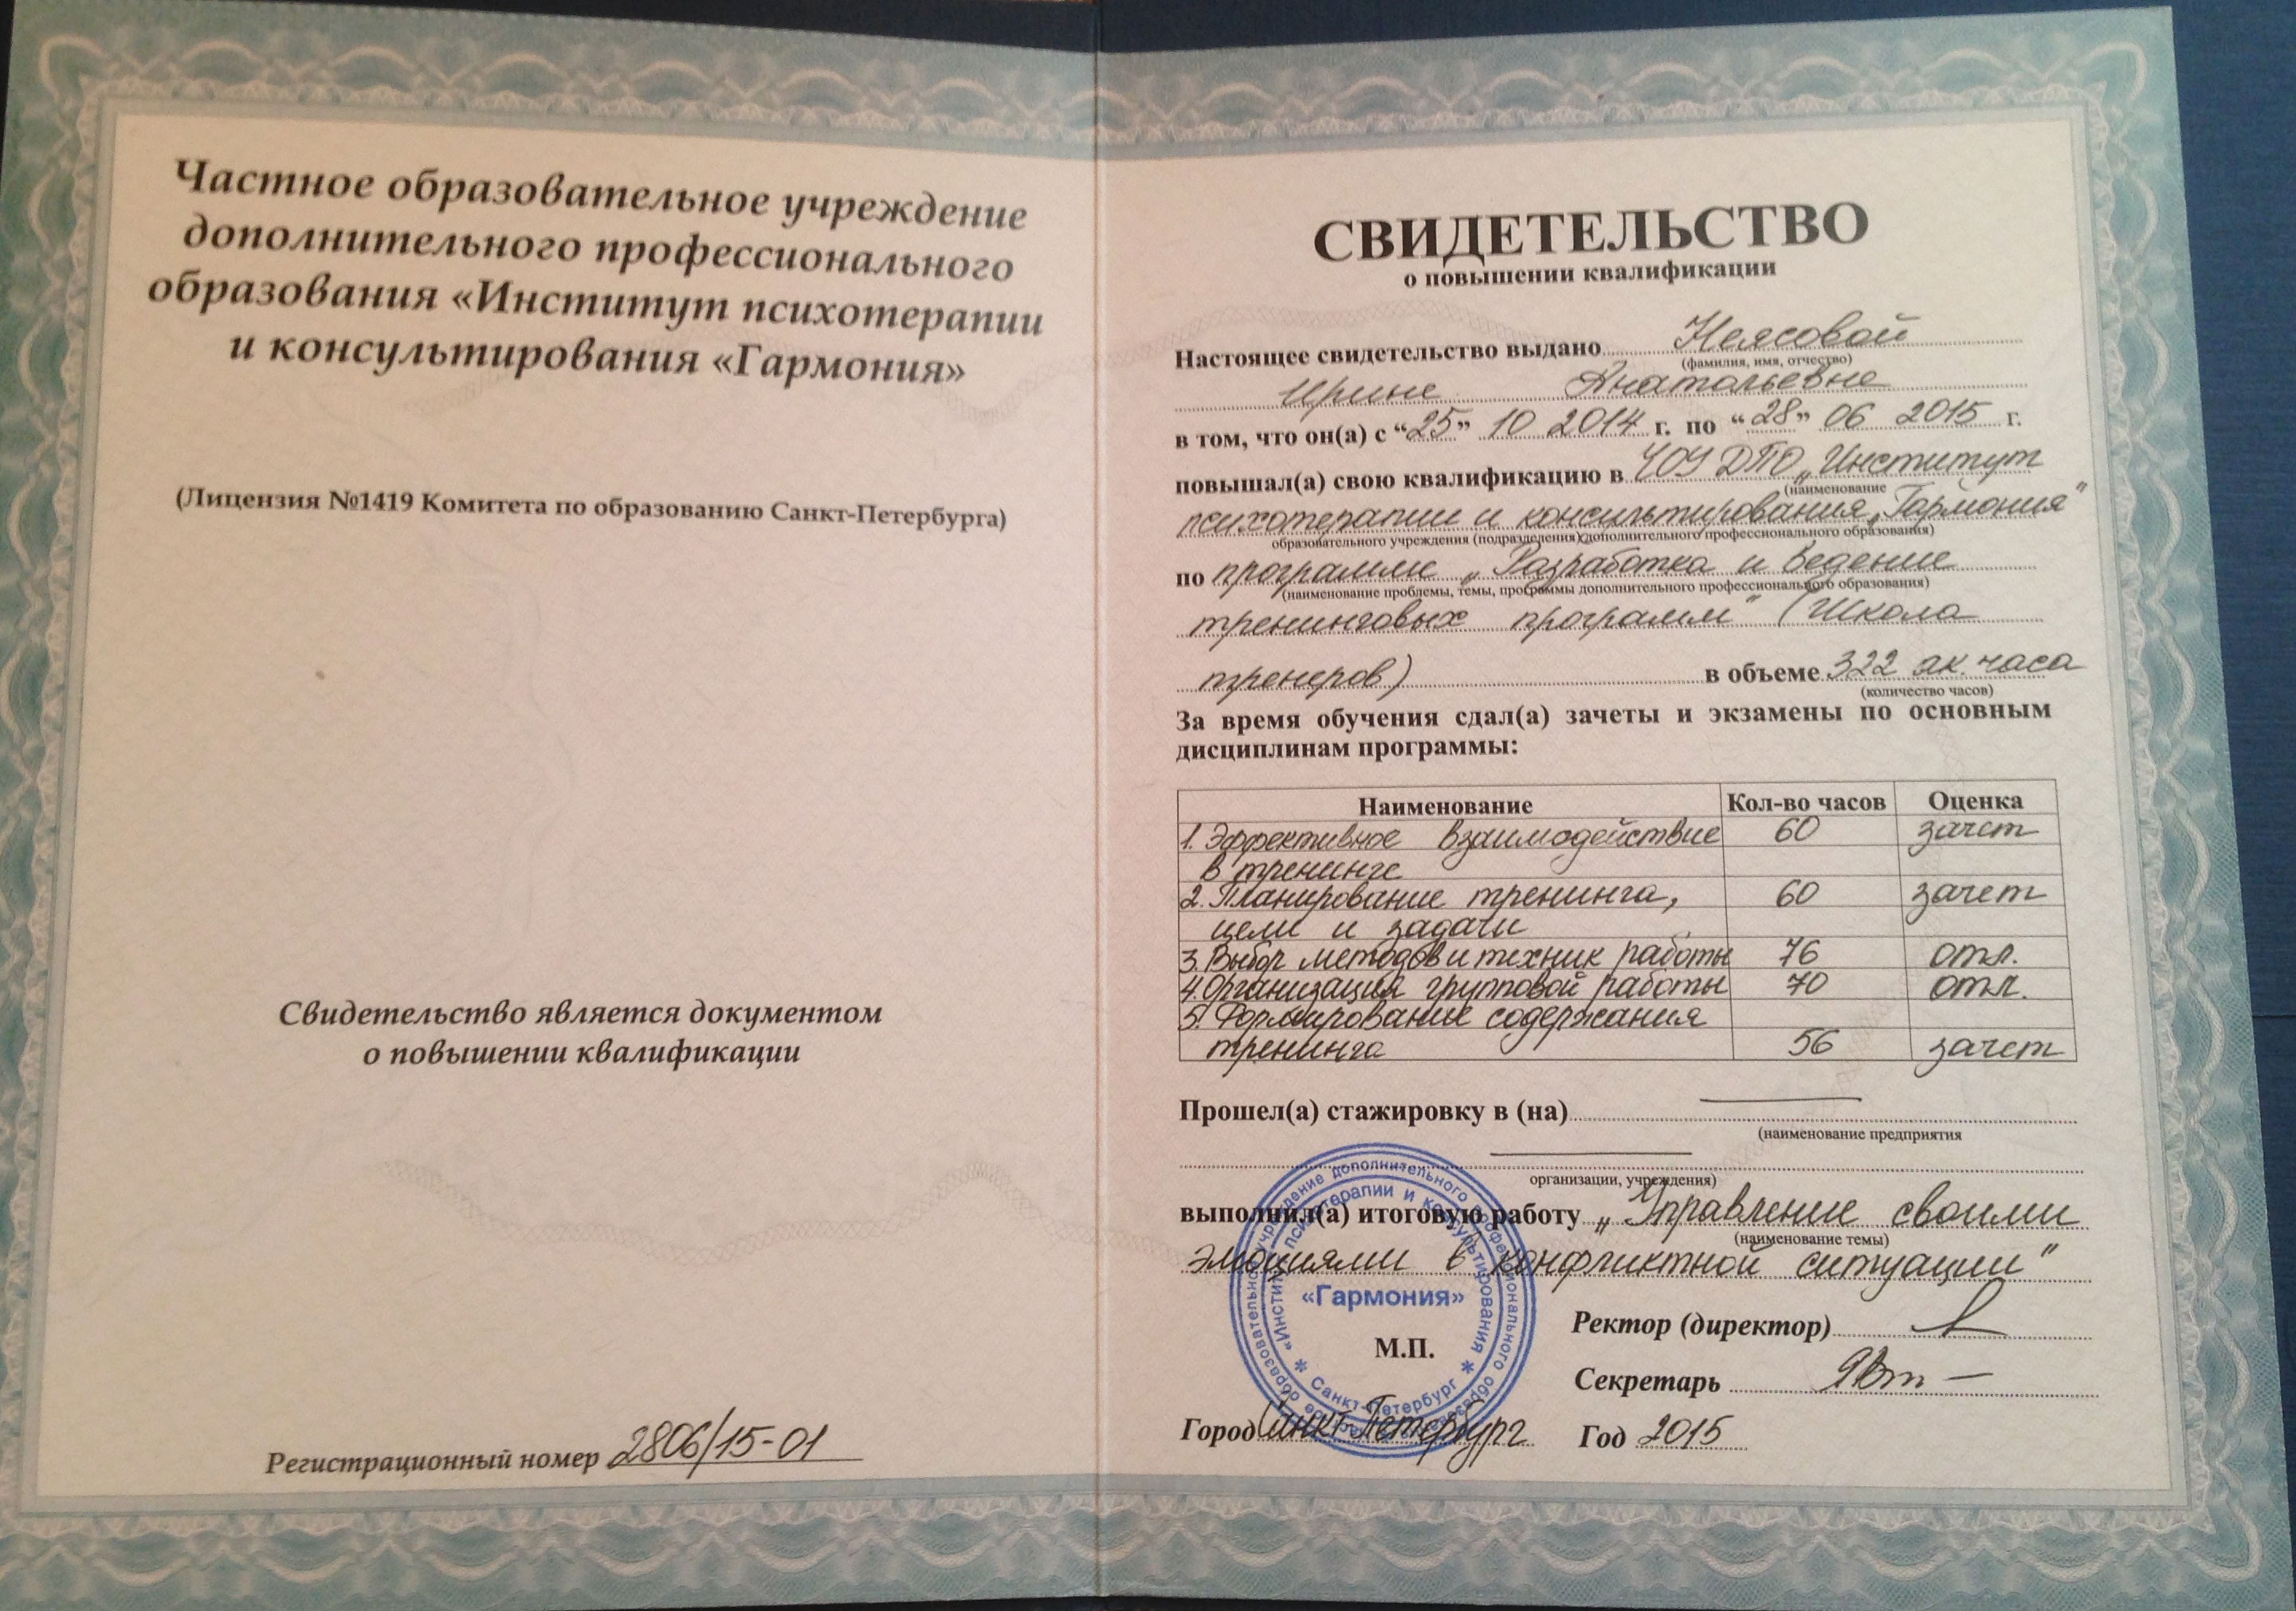 Частное образовательное учреждение
дополнительного профессионального
образования «Институт психотерапии
и консультирования «Гармония»
(Лицензия №1419 Комитета по образованию Санкт-Петербурга)
Свидетельство является документом
о повышении квалификации
Регистрационный номер 2806/15-01
СВИДЕТЕЛЬСТВО
о повышении квалификации
Настоящее свидетельство выдано Неясовой
(фамилия, имя, отчество)
Ирине Анатольевне
в том, что он(а) с "25" 10 2014 г. по "28" 06 2015 г.
повышал(а) свою квалификацию в ЧОУ ДПО „Институт
(наименование
психотерапии и консультирования „Гармония"
образовательного учреждения (подразделения) дополнительного профессионального образования)
по программе „Разработка и ведение
(наименование проблемы, темы, программы дополнительного профессионального образования)
тренинговых программ" (Школа
тренеров) в объеме 322 ак. часа
(количество часов)
За время обучения сдал(а) зачеты и экзамены по основным
дисциплинам программы:
Наименование Кол-во часов Оценка
1. Эффективное взаимодействие 60 зачет
в тренинге
2. Планирование тренинга, 60 зачет
цели и задачи
3. Выбор методов и техник работы 76 отл.
4. Организация групповой работы 70 отл.
5. Формирование содержания
тренинга 56 зачет
Прошел(а) стажировку в (на)
(наименование предприятия
организации, учреждения)
выполнил(а) итоговую работу „Управление своими
(наименование темы)
эмоциями в конфликтной ситуации"
«Гармония»
М.П.
«Институт психотерапии и консультирования * Санкт-Петербург *
Ректор (директор)
Секретарь
Город Санкт-Петербург Год 2015